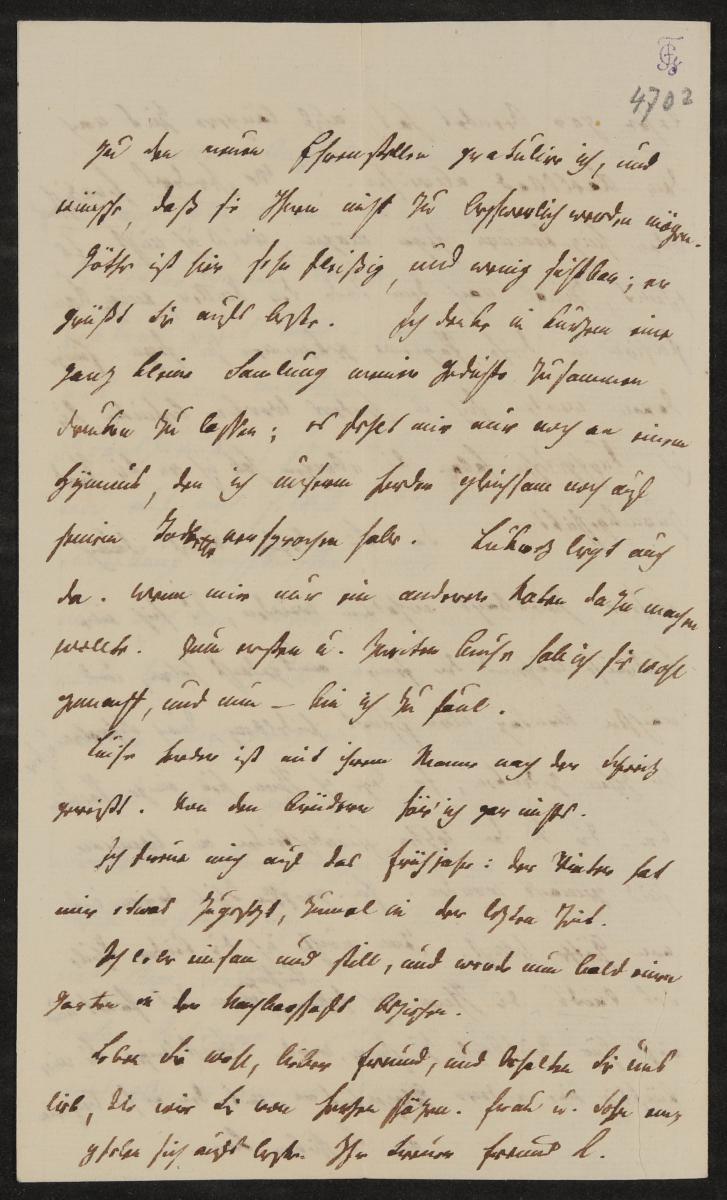 4702
Zu den neuen Ehrenstellen gratulire ich, und
wünsche, daß sie Ihnen nicht zu beschwerlich werden mögen.
Göthe ist hier sehr fleißig, und wenig sichtbar; er
grüßt Sie aufs beste. Ich denke in kurzem eine
ganz kleine Samlung meiner Gedichte zusammen
drucken zu lassen; es fehlet mir nur noch an einem
Hymnus, den ich unserm Herder gleichsam noch auf
seinem versprochen habe. Lukrez liegt auch
da. Wenn mir nur ein anderer Noten dazu machen
wollte. Zum ersten u. zweiten Buche hab ich sie wohl
gemacht, und nun – bin ich zu faul.
Luise Herder ist mit ihrem Manne nach der Schweiz
gereißt. Von den Brüdern hör' ich gar nichts.
Ich freue mich auf das Frühjahr: der Winter hat
mir etwas zugesetzt, zumal in der letzten Zeit.
Ich lebe einsam und still, und werde nun bald einen
Garten in der Nachbarschaft beziehen.
Leben Sie wohl, lieber Freund, und behalten Sie uns
lieb, die wir Sie von Herzen schätzen. Frau u. Sohn emp
fehlen sich aufs beste. Ihr treuer Freund K.